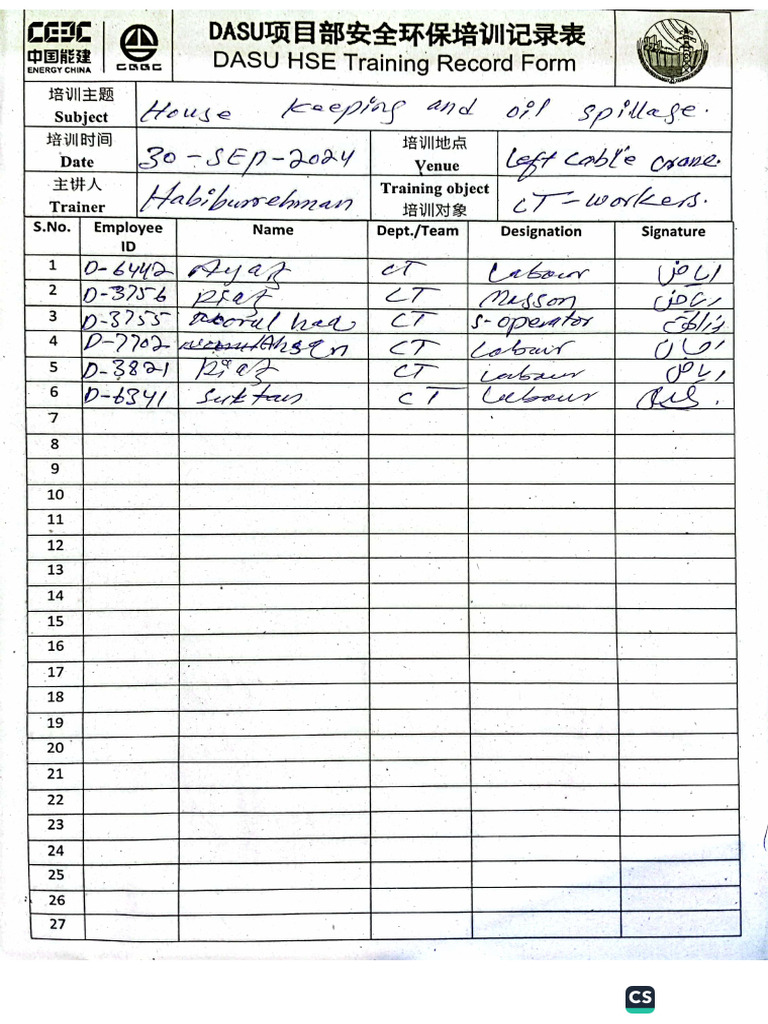 CEEC
中国能建
ENERGY CHINA
CGGC
DASU项目部安全环保培训记录表
DASU HSE Training Record Form
培训主题
Subject
House keeping and oil spillage.
培训时间
Date
30-SEP-2024
培训地点
Venue
Left cable crane.
主讲人
Trainer
Habiburrehman
Training object
培训对象
CT-workers.
S.No. Employee ID Name Dept./Team Designation Signature
1 D-6442 Ayaz CT Labour
2 D-3756 Riaz CT Masson ریاض
3 D-3755 CT S-operator
4 D-7702 Ahsan CT Labour
5 D-3821 Riaz CT Labour ریاض
6 D-6341 Sultan CT Labour
7
8
9
10
11
12
13
14
15
16
17
18
19
20
21
22
23
24
25
26
27
CS